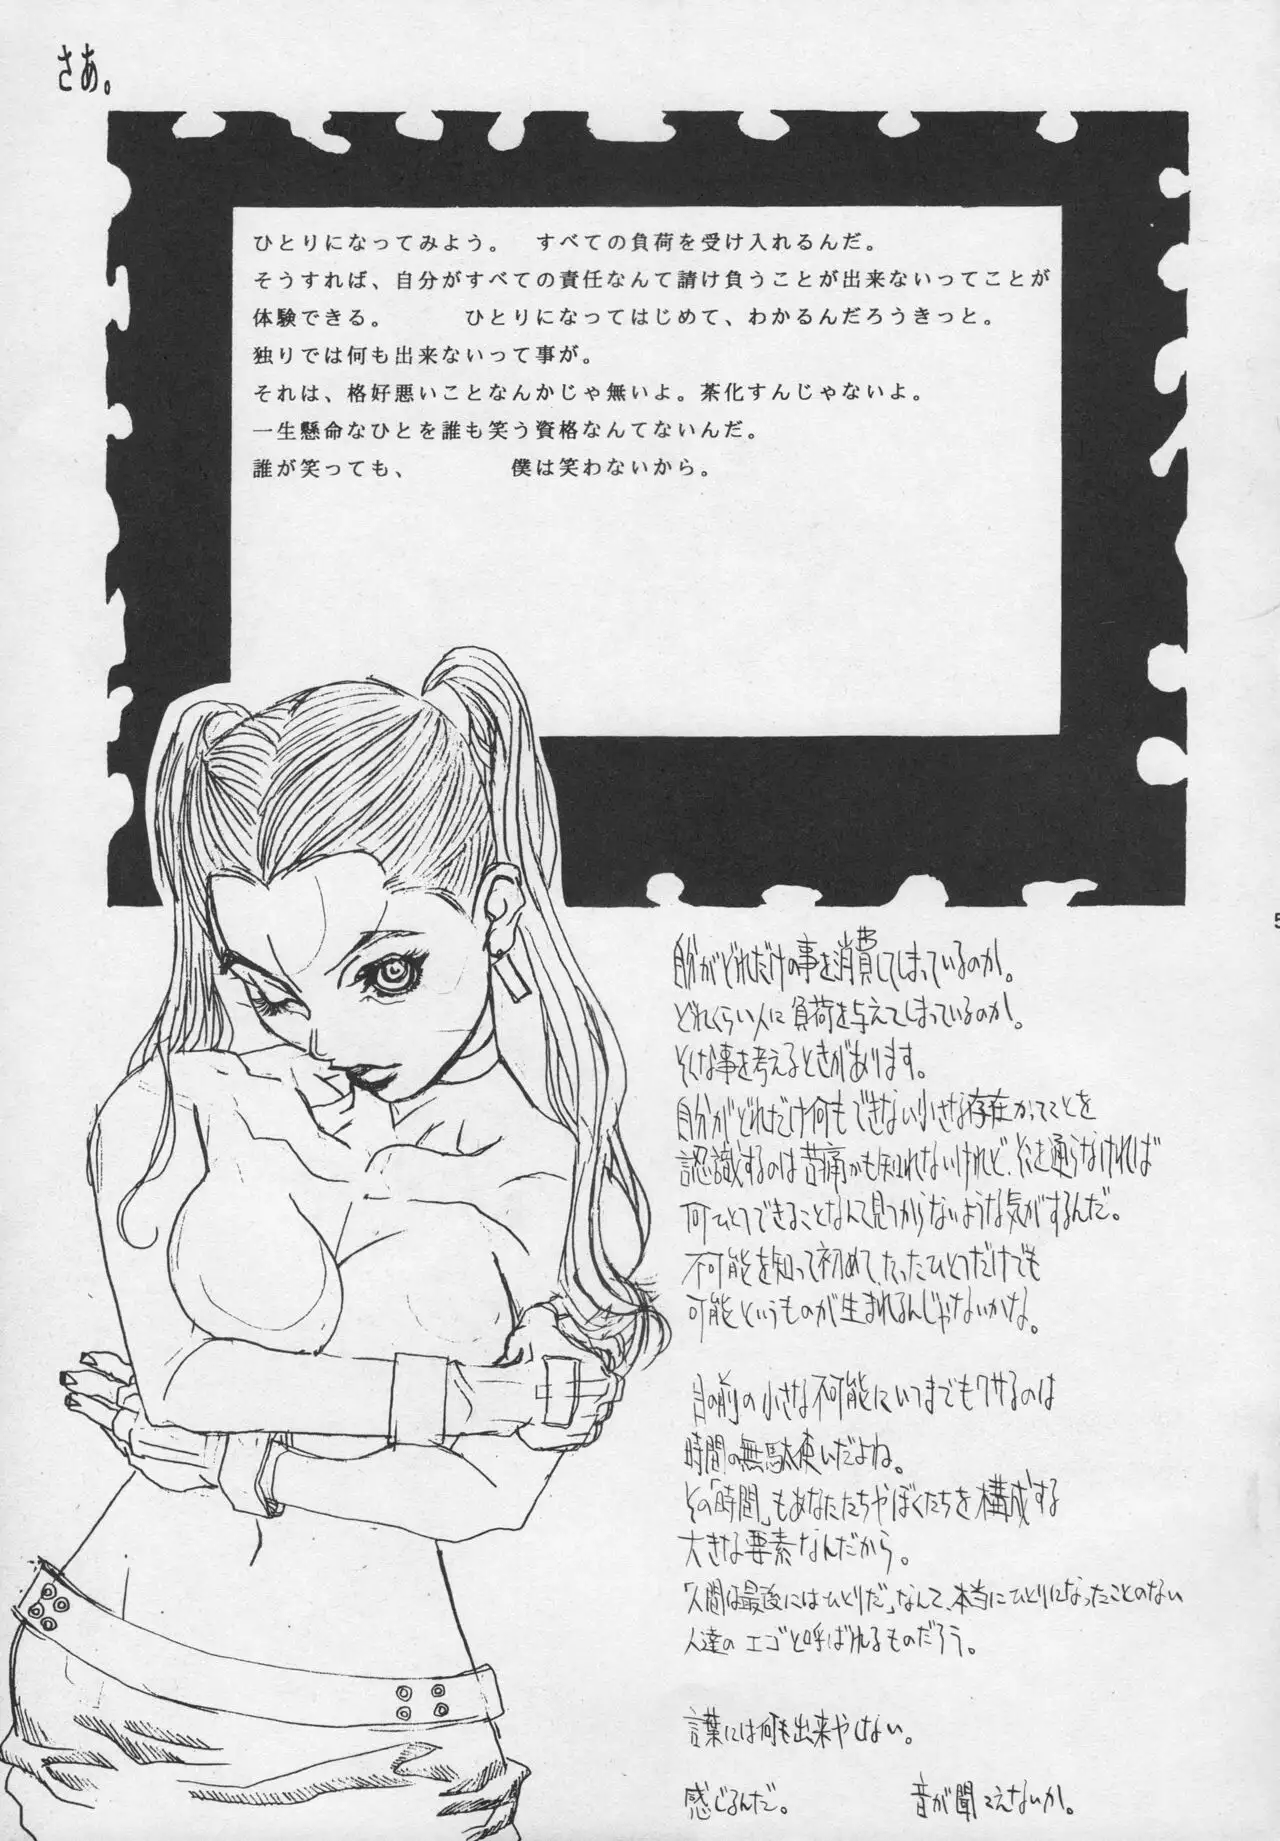 さあ。
ひとりになってみよう。　すべての負荷を受け入れるんだ。
そうすれば、自分がすべての責任なんて請け負うことが出来ないってことが
体験できる。　　　ひとりになってはじめて、わかるんだろうきっと。
独りでは何も出来ないって事が。
それは、格好悪いことなんかじゃ無いよ。茶化すんじゃないよ。
一生懸命なひとを誰も笑う資格なんてないんだ。
誰が笑っても、　　　　僕は笑わないから。
5
自分がどれだけの事を消費してしまっているのか。
どれくらい人に負荷を与えてしまっているのか。
そんな事を考えるときがあります。
自分がどれだけ何もできない小さな存在かってことを
認識するのは苦痛かも知れないけれど、そこを通らなければ
何ひとつできることなんて見つからないような気がするんだ。
不可能を知って初めて、たったひとつだけでも
可能というものが生まれるんじゃないかな。
目の前の小さな不可能にいつまでもクサるのは
時間の無駄使いだよね。
その「時間」もあなたたちやぼくたちを構成する
大きな要素なんだから。
「人間は最後にはひとりだ」なんて、本当にひとりになったことのない
人達のエゴと呼ばれるものだろう。
言葉には何も出来やしない。
感じるんだ。　　　　音が聞こえないか。